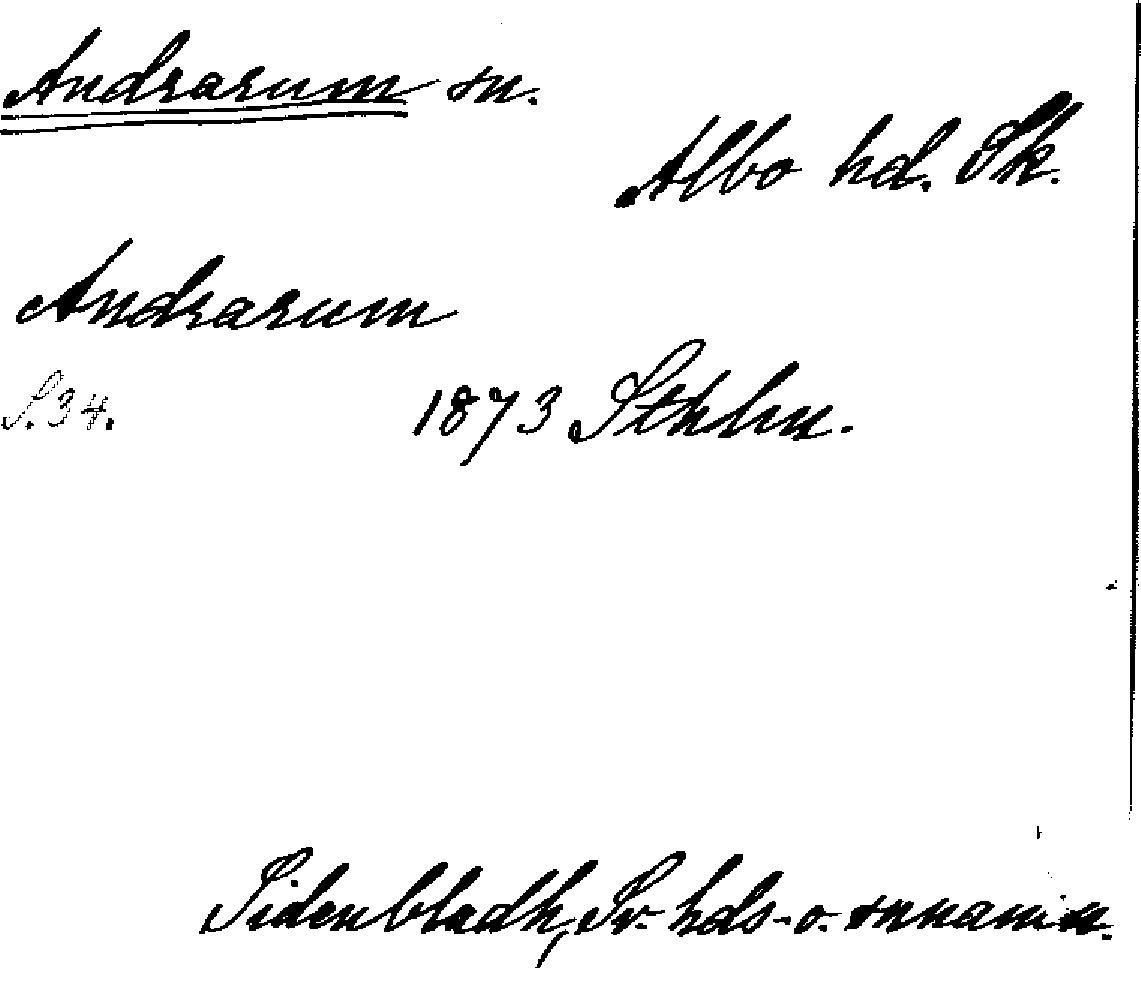 Andrarum sn.
Albo hd. Sk.
Andrarum
S. 34. 1873 Sthlm.
Sidenbladh, Sv. hds- o. snnamn.